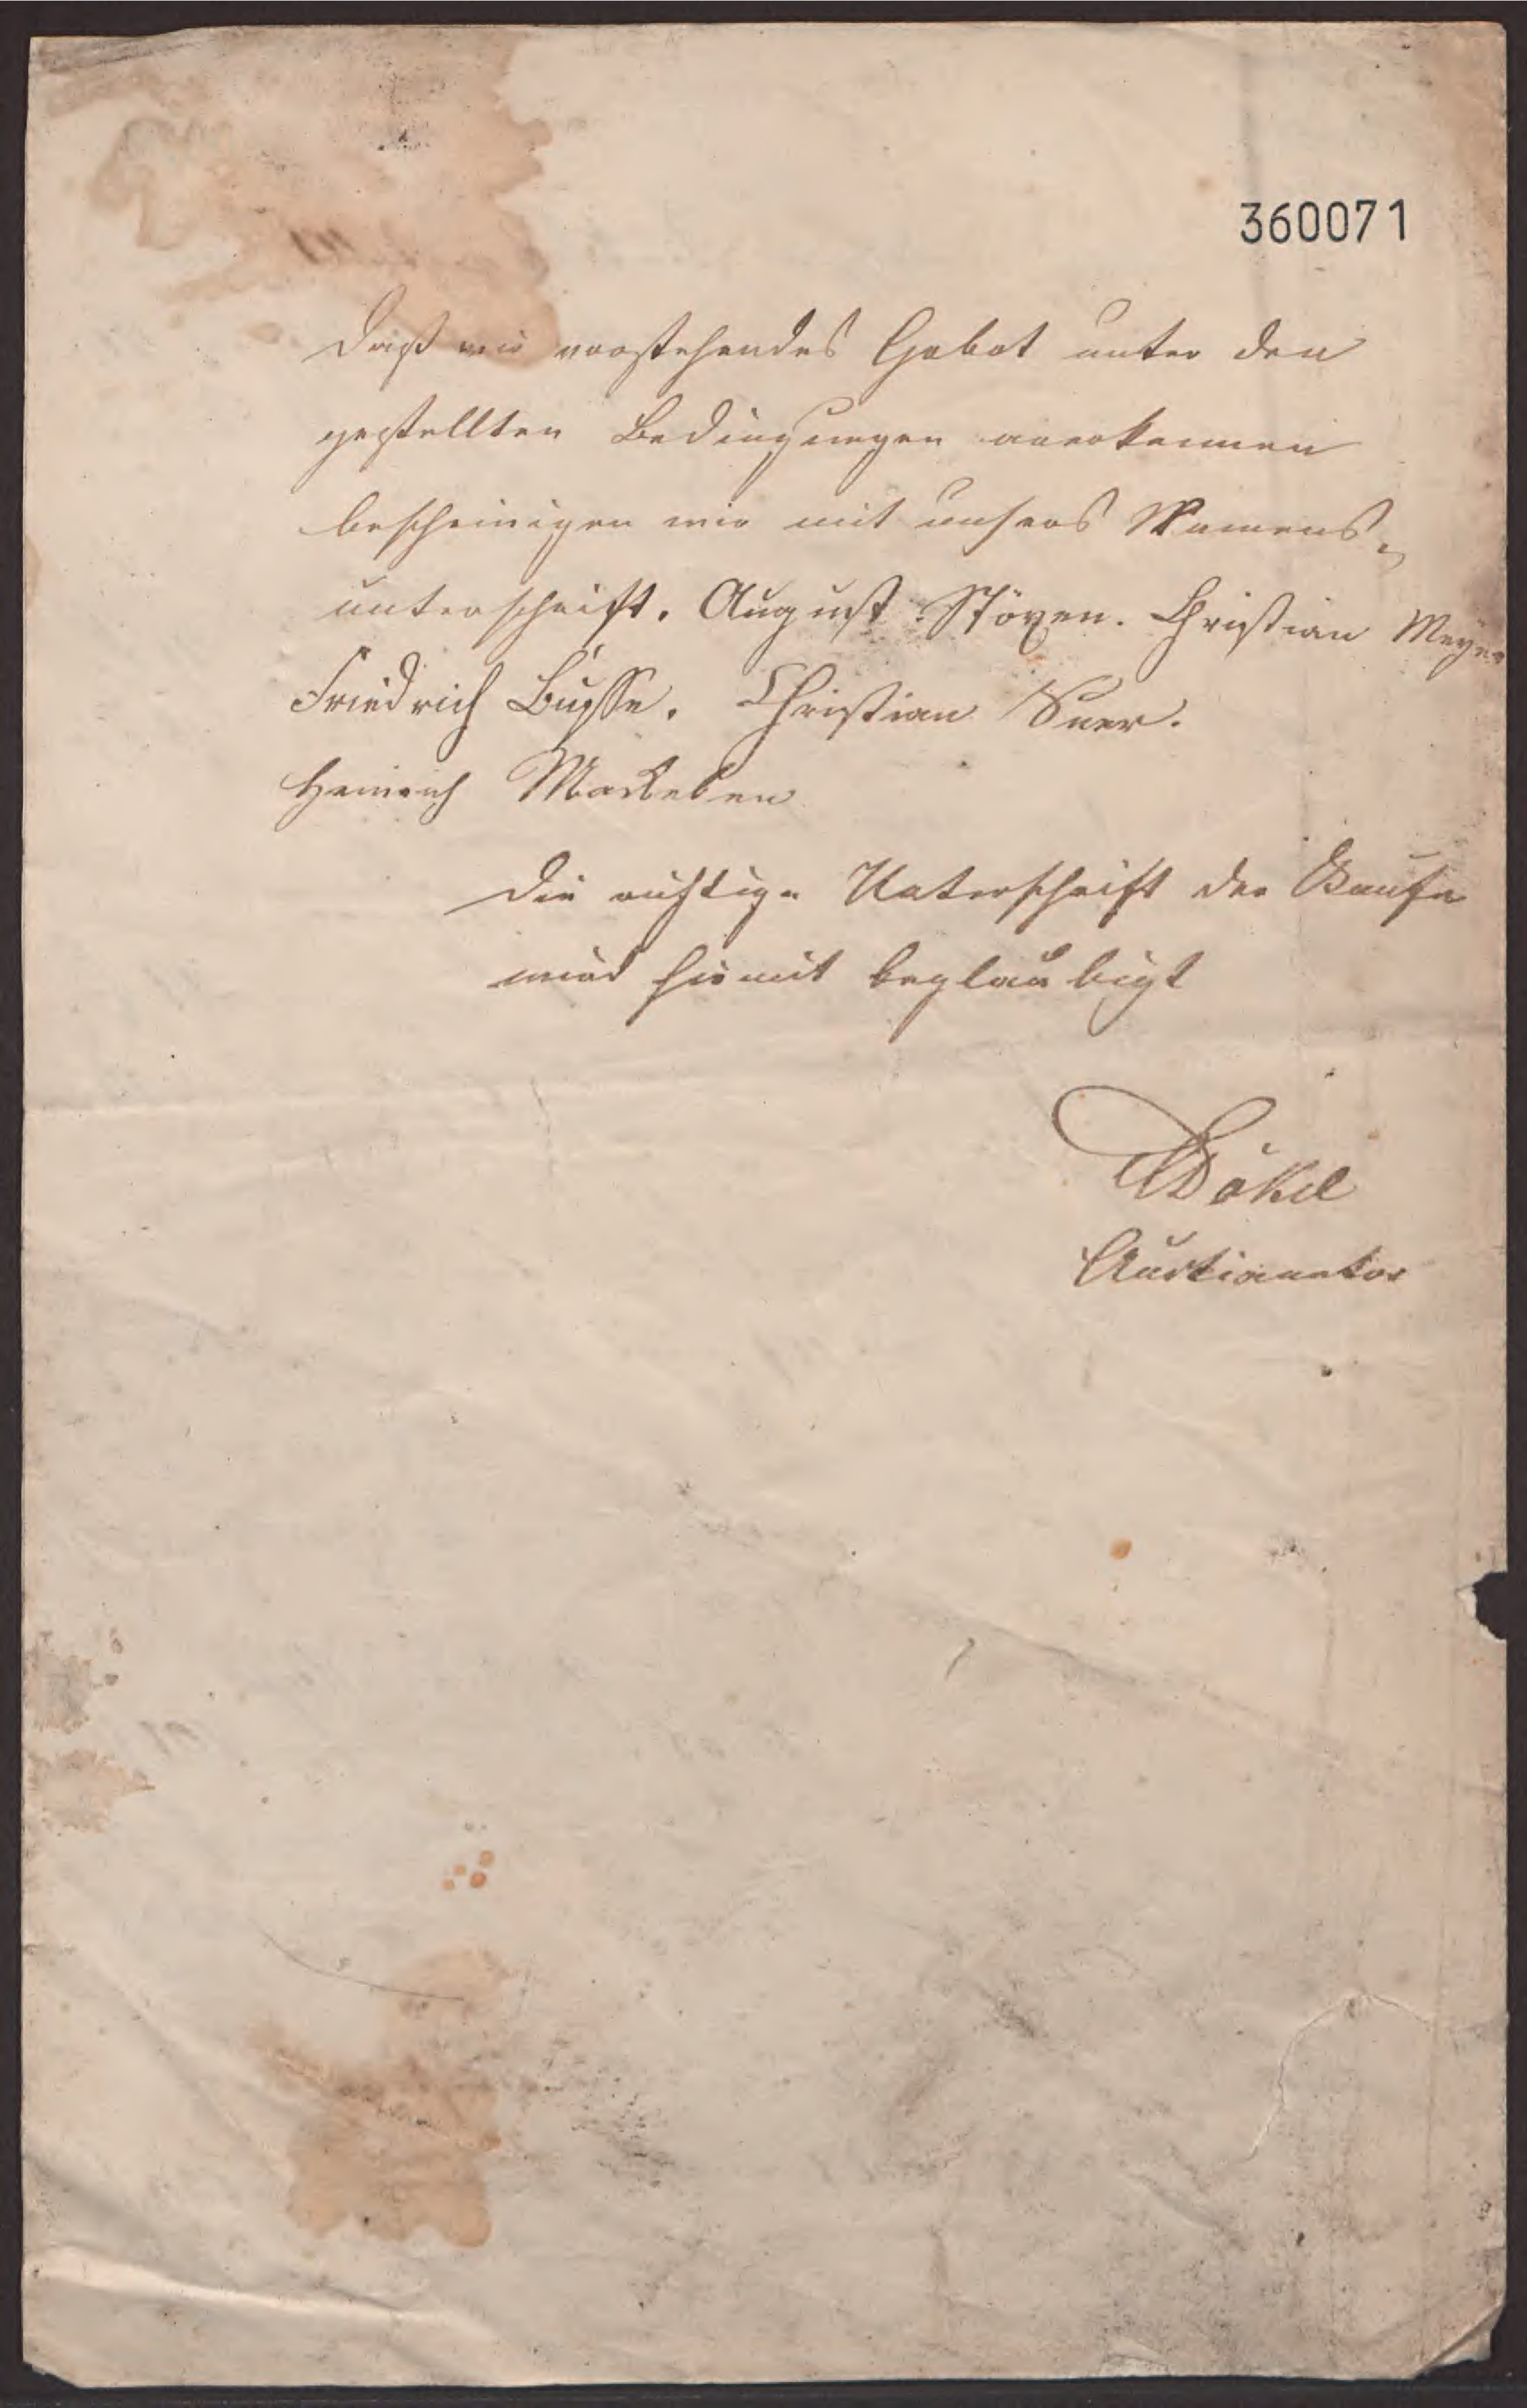 360071
Daß wir vorstehendes Gebot unter den
gestellten Bedingungen anerkennen
bescheinigen wir mit unsers Namens-
unterschrift. August Stöven. Christian Meyer
Friedrich Busse. Christian Suer.
Heinrich Markeben
Die richtige Unterschrift der
wird hiemit beglaubigt
Auctionator